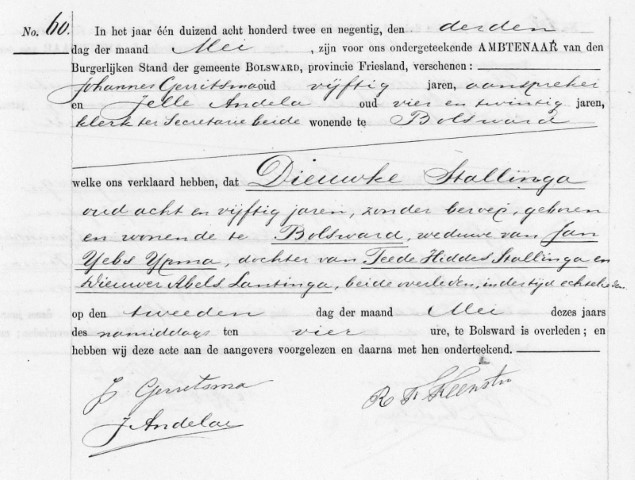 No. 60. In het jaar één duizend acht honderd twee en negentig, den derden
dag der maand Mei, zijn voor ons ondergeteekende AMBTENAAR van den
Burgerlijken Stand der gemeente BOLSWARD, provincie Friesland, verschenen:
Johannes Gerritsma oud vijftig jaren, aanspreker
en Jelle Andela oud vier en twintig jaren,
klerk ter Secretarie beide wonende te Bolsward
welke ons verklaard hebben, dat Dieuwke Stallinga
oud acht en vijftig jaren, zonder beroep, geboren
en wonende te Bolsward, weduwe van Jan
Ypma, dochter van Teede Hiddes Stallinga en
Dieuwer Abels Lantinga, beide overleden, in der tijd echtelieden
op den tweeden dag der maand Mei dezes jaars
des namiddags ten vier ure, te Bolsward is overleden; en
hebben wij deze acte aan de aangevers voorgelezen en daarna met hen onderteekend.
J Gerritsma
J Andela